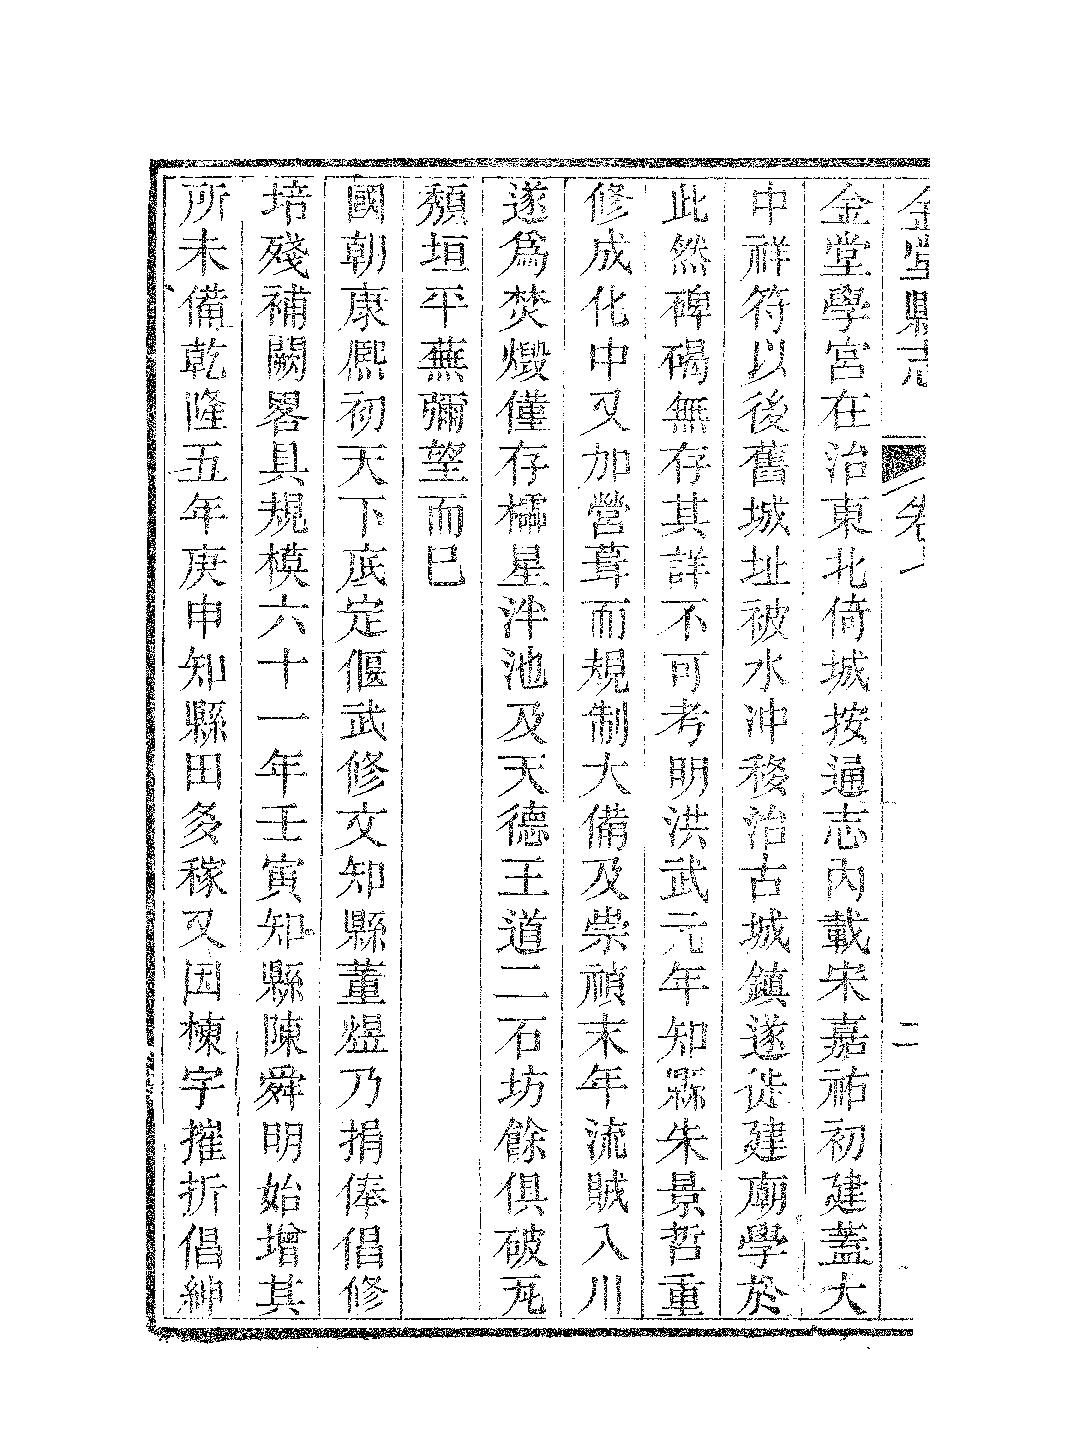 金堂縣志 卷 二
金堂學宮在治東北倚城按通志內載宋嘉祐初建蓋大
中祥符以後舊城址被水冲移治古城鎮遂徙建廟學於
此然碑碣無存其詳不可考明洪武元年知縣朱景哲重
修成化中又加營葺而規制大備及崇禎末年流賊入川
遂爲焚燬僅存櫺星泮池及天德王道二石坊餘俱破瓦
頹垣平蕪彌望而已
國朝康熙初天下底定偃武修文知縣董煜乃捐俸倡修
培殘補闕畧具規模六十一年壬寅知縣陳舜明始增其
所未備乾隆五年庚申知縣田多稼又因棟宇摧折倡紳